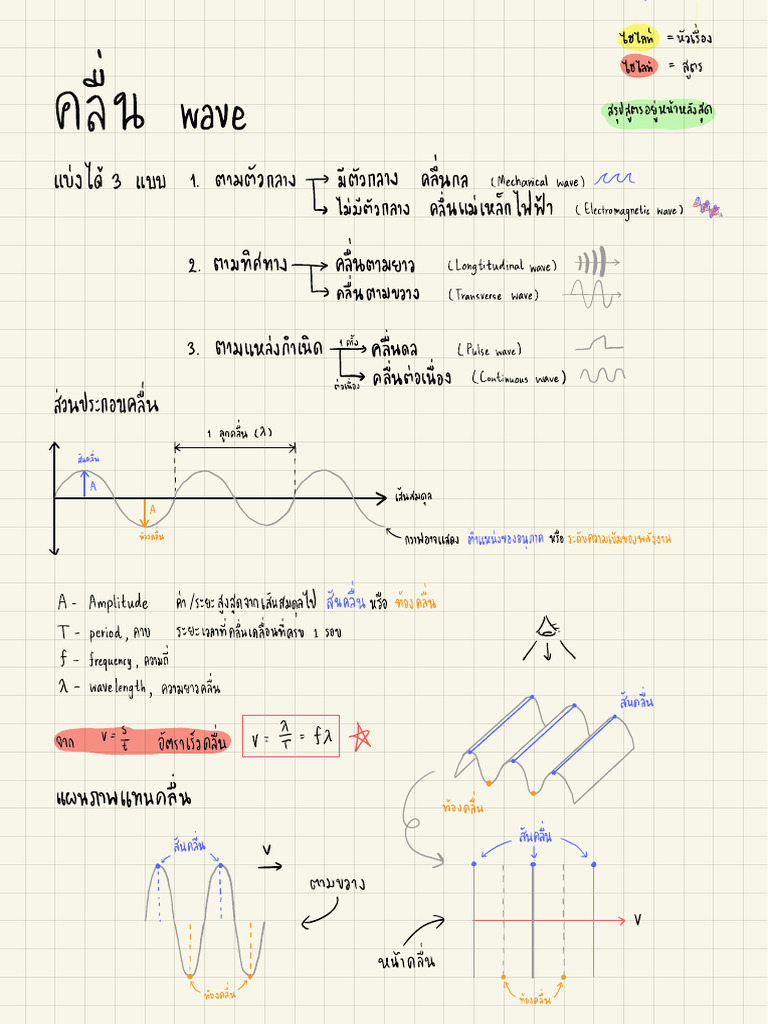 ไฮไลท์ = หัวเรื่อง
ไฮไลท์ = สูตร
สรุปสูตรอยู่หน้าหลังสุด
คลื่น wave
แบ่งได้ 3 แบบ 1. ตามตัวกลาง → มีตัวกลาง คลื่นกล (Mechanical wave)
ไม่มีตัวกลาง คลื่นแม่เหล็กไฟฟ้า (Electromagnetic wave)
2. ตามทิศทาง → คลื่นตามยาว (Longtitudinal wave)
คลื่นตามขวาง (Transverse wave)
3. ตามแหล่งกำเนิด 1 ครั้ง → คลื่นดล (Pulse wave)
ต่อเนื่อง คลื่นต่อเนื่อง (Continuous wave)
ส่วนประกอบคลื่น
1 ลูกคลื่น (λ)
สันคลื่น
A
A
ท้องคลื่น
เส้นสมดุล
กราฟอาจแสดง ตำแหน่งของอนุภาค หรือ ระดับความเข้มของพลังงาน
A - Amplitude ค่า/ระยะสูงสุดจากเส้นสมดุลไป สันคลื่น หรือ ท้องคลื่น
T - period, คาบ ระยะเวลาที่คลื่นเคลื่อนที่ครบ 1 รอบ
f - frequency, ความถี่
λ - wavelength, ความยาวคลื่น
สันคลื่น
จาก v = s/t อัตราเร็วคลื่น v = λ/T = fλ
แผนภาพแทนคลื่น
ท้องคลื่น
สันคลื่น
v
ตามขวาง
ท้องคลื่น
สันคลื่น
v
หน้าคลื่น
ท้องคลื่น